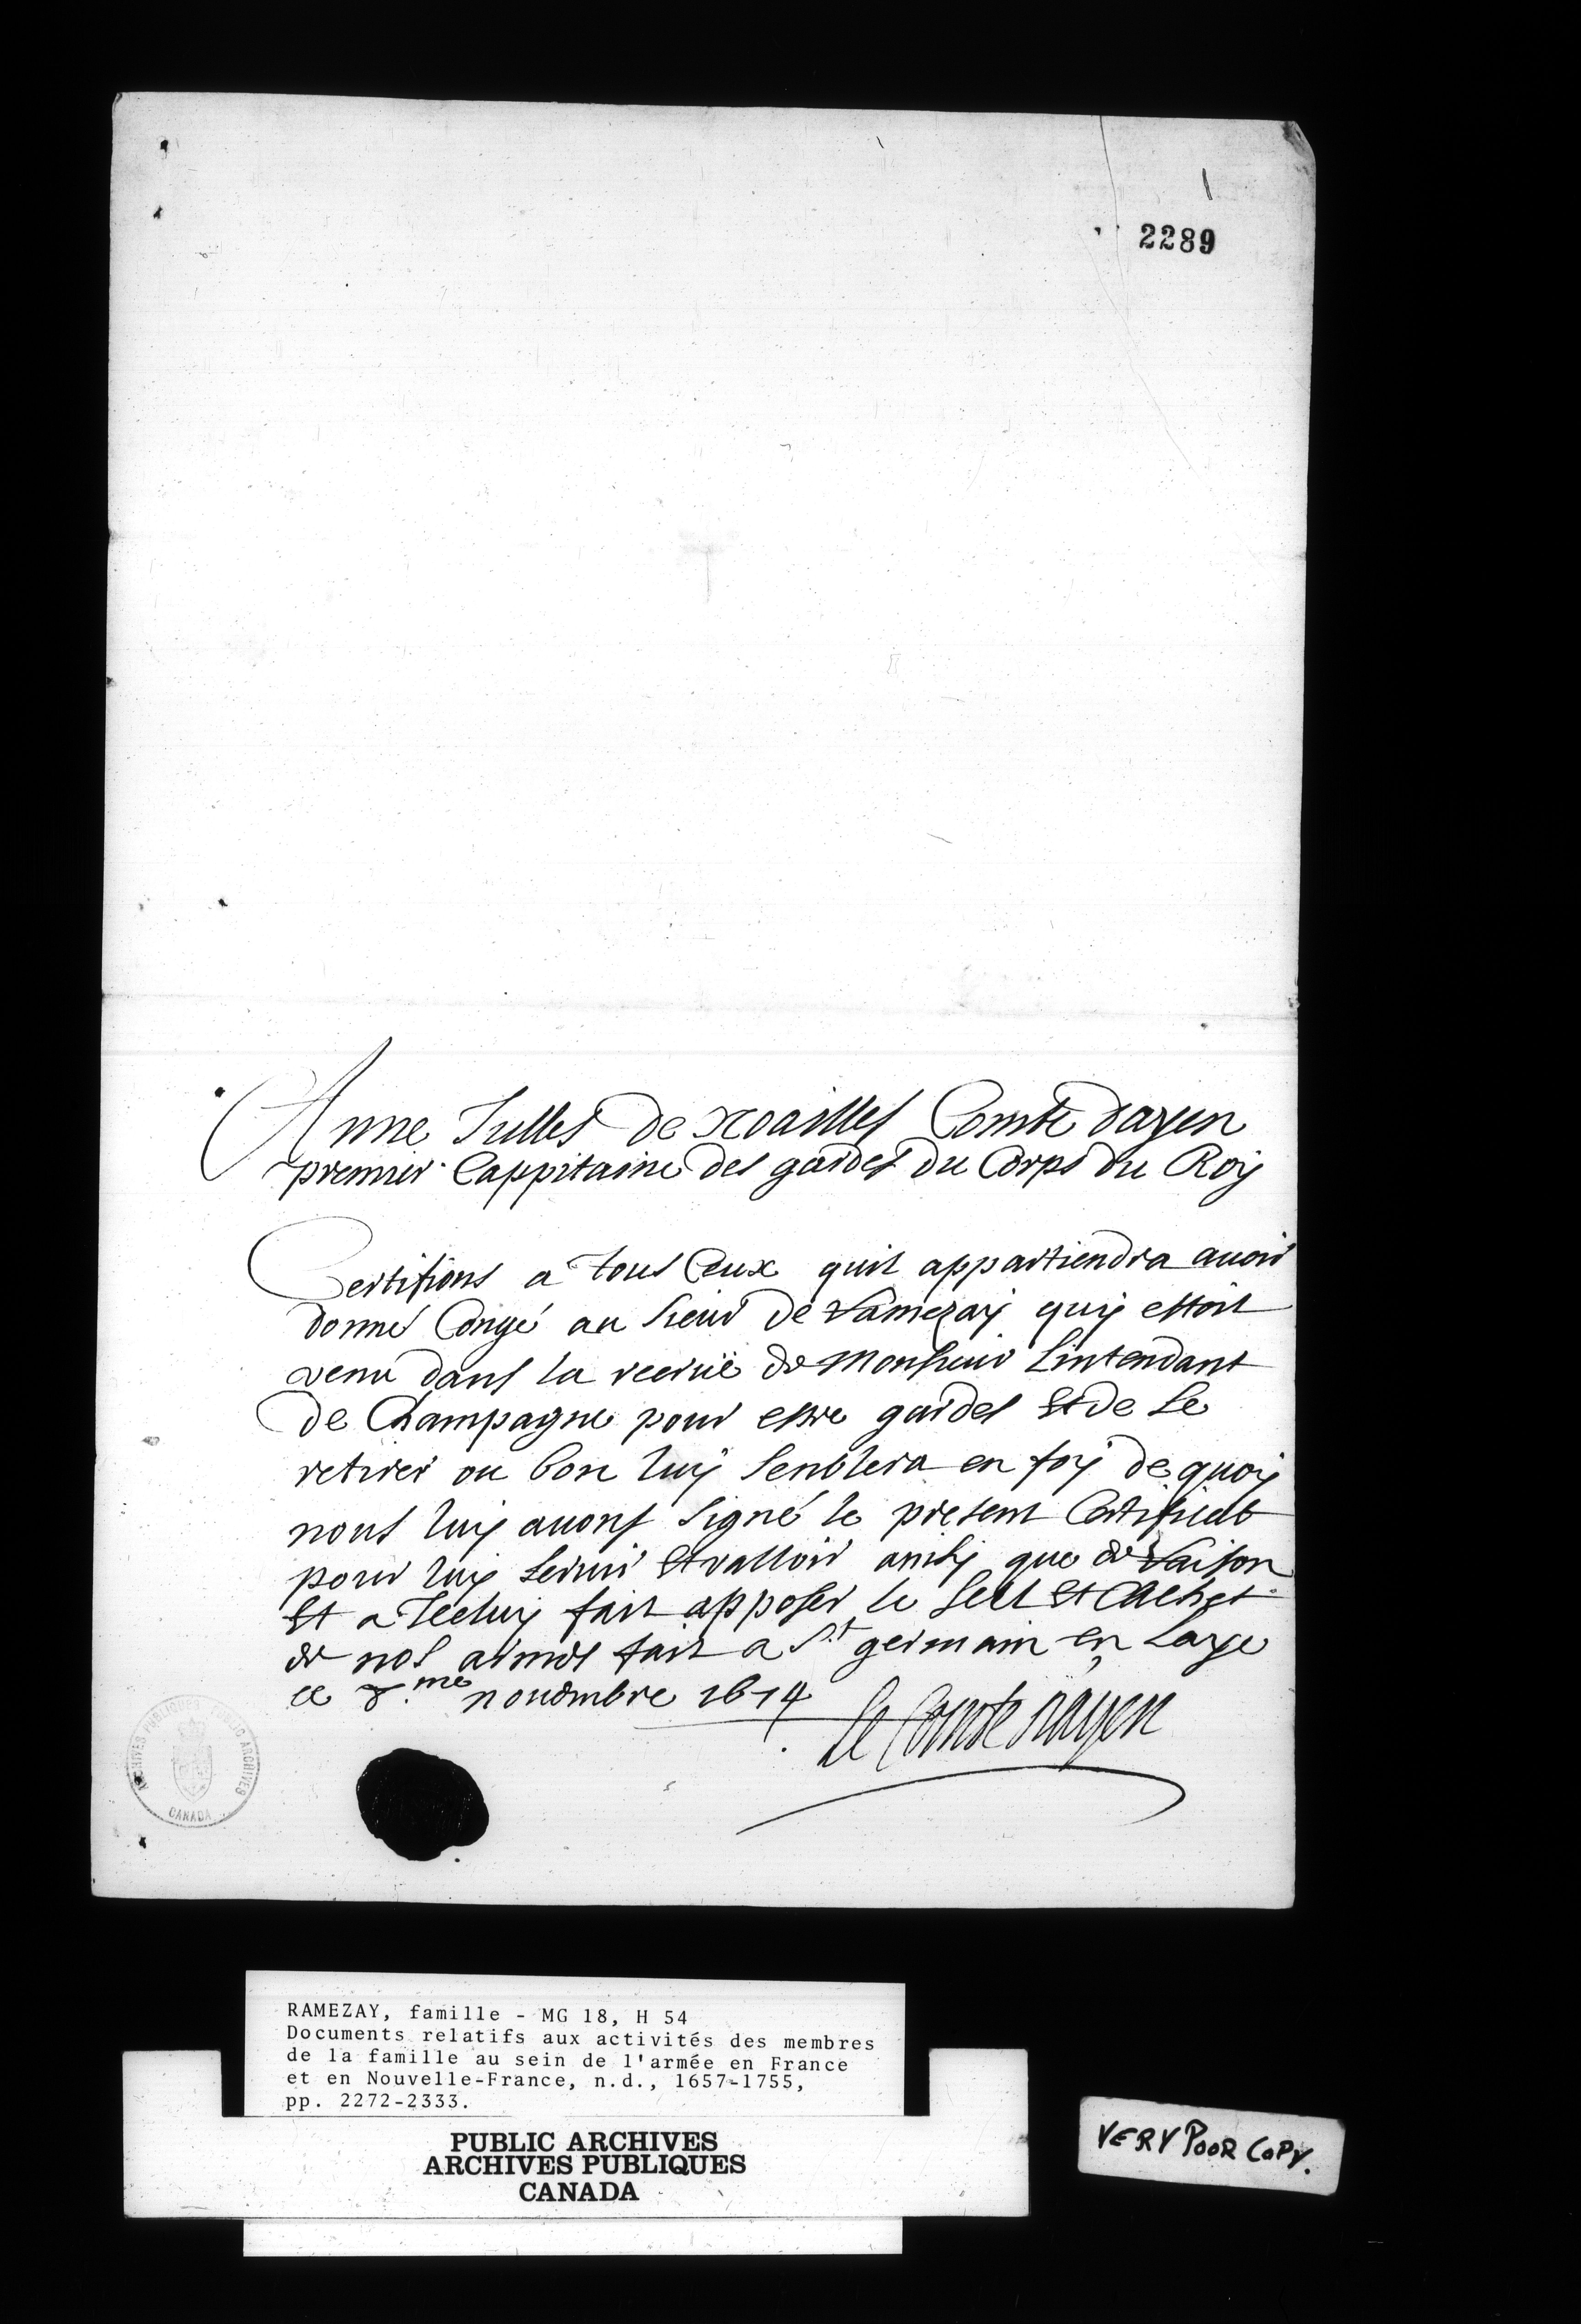 1
2289
Anne Julles de Noailles Comte dayen
premier Cappitaine des gardes du Corps du Roy
Certifions a tous Ceux quil appartiendra auoir
donné Congé au sieur de Ramezay quy estoit
venu dans la recruë de Monsieur Lintendant
de Champagne pour estre gardes Et de se
retirer ou bon luy senblera en foy de quoy
nous luy auons signé le present Certificat
pour luy seruir Et valloir ainsy que de Raison
Et a Iceluy fait apposer le seel Et Cachet
de nos armes fait a St. germain en Laye
ce 8.me nouembre 1674
Le Comte dayen
ARCHIVES PUBLIQUES PUBLIC ARCHIVES
CANADA
RAMEZAY, famille - MG 18, H 54
Documents relatifs aux activités des membres
de la famille au sein de l'armée en France
et en Nouvelle-France, n.d., 1657-1755,
pp. 2272-2333.
PUBLIC ARCHIVES
ARCHIVES PUBLIQUES
CANADA
VERY POOR COPY.